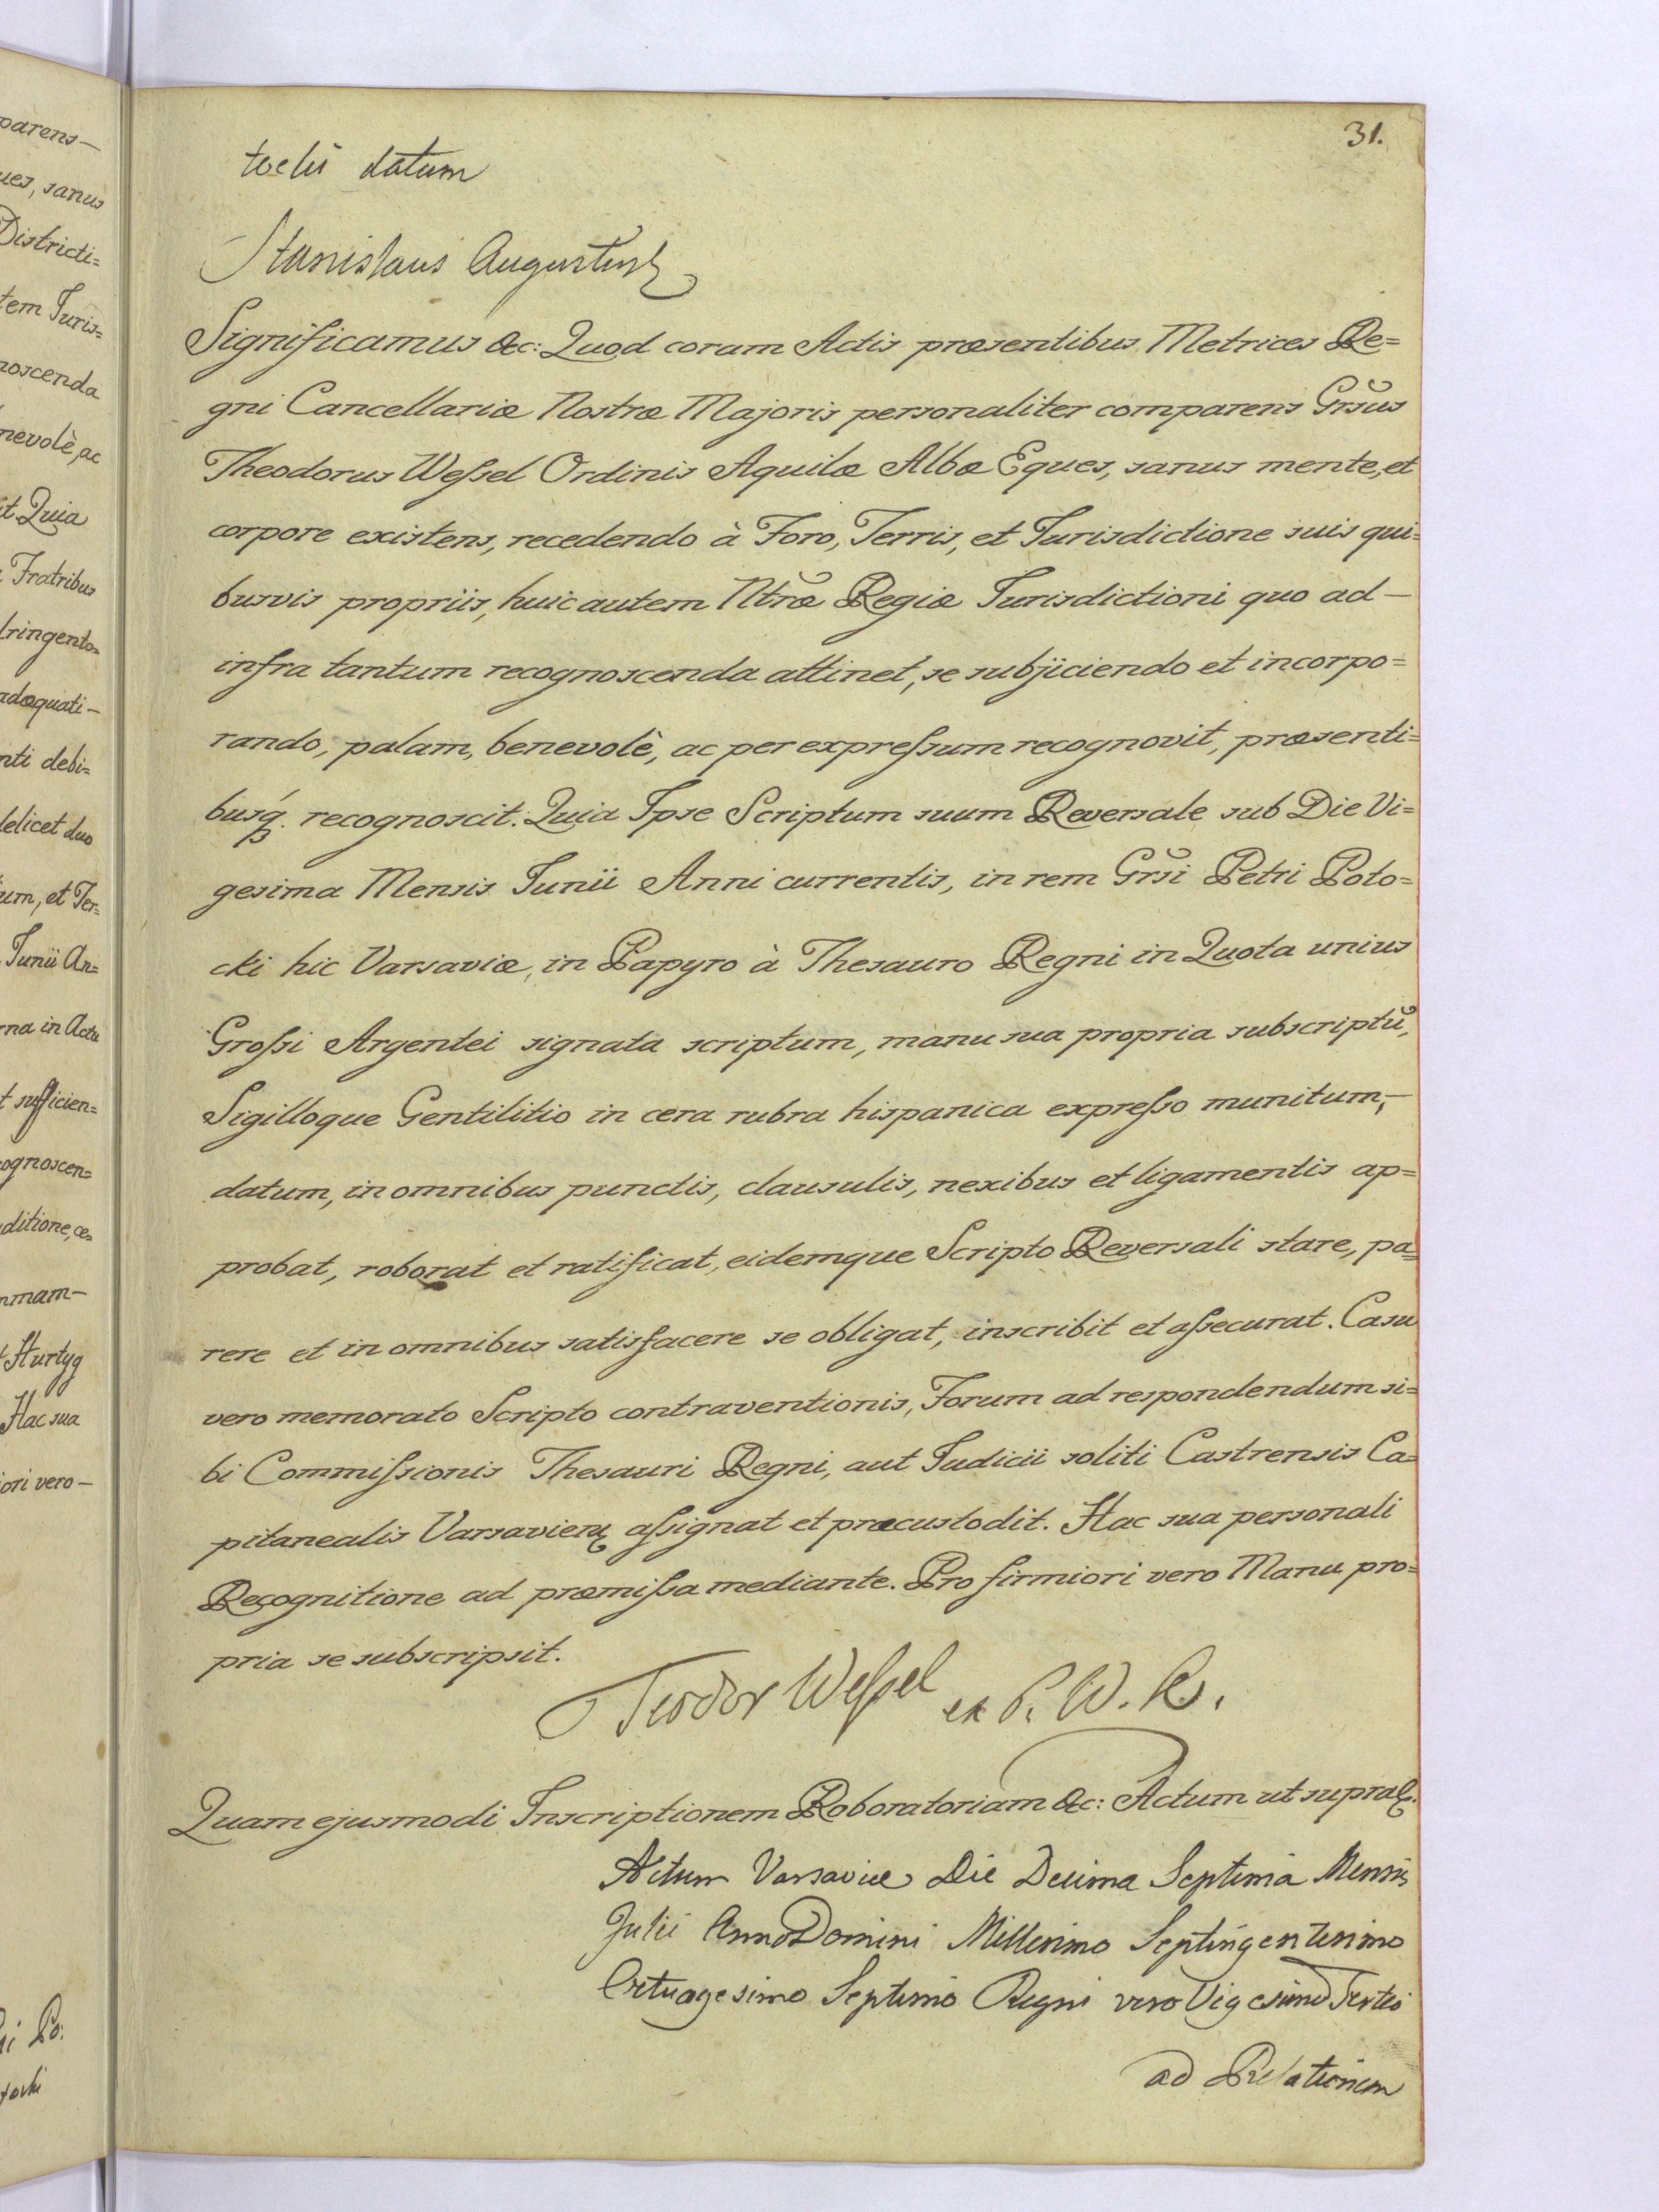 31.
datum
Stanislaus Augustus
Significamus &c: Quod coram Actis præsentibus Metrices Re=
gni Cancellariæ Nostræ Majoris personaliter comparens Grsus
Theodorus Weſsel Ordinis Aquilæ Albæ Eques, sanus mente, et
corpore existens, recedendo à Foro, Terris, et Jurisdictione suis qui=
busvis propriis, huic autem Ntræ Regiæ Jurisdictioni quo ad—
infra tantum recognoscenda attinet, se subjiciendo et incorpo=
rando, palam, benevolè, ac per expreſsum recognovit, præsenti=
busq. recognoscit. Quia Ipse Scriptum suum Reversale sub Die Vi=
gesima Mensis Junii Anni currentis, in rem Grsi Petri Poto=
cki hic Varsaviæ, in Papyro à Thesauro Regni in Quota unius
Groſsi Argentei signata scriptum, manu sua propria subscriptũ,
Sigilloque Gentilitio in cera rubra hispanica expreſso munitum,—
datum, in omnibus punctis, clausulis, nexibus et ligamentis ap=
probat, roborat et ratificat, eidemque Scripto Reversali stare, pa=
rere et in omnibus satisfacere se obligat, inscribit et aſsecurat. Casu
vero memorato Scripto contraventionis, Forum ad respondendum si=
bi Commiſsionis Thesauri Regni, aut Judicii soliti Castrensis Ca=
pitanealis Varsavien aſsignat et præcustodit. Hac sua personali
Recognitione ad præmiſsa mediante. Pro firmiori vero Manu pro=
pria se subscripsit.
Teodor Weſsel P. W. K.
Quam ejusmodi Inscriptionem Roboratoriam &c: Actum ut supra
Actum Varsaviæ Die Decima Septima Mensis
Julii Anno Domini Millesimo Septingentesimo
Octuagesimo Septimo Regni vero Vigesimo Tertio
ad Relationem